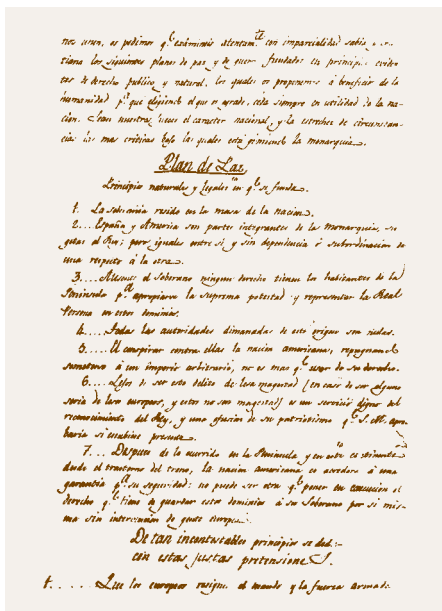 nos unen, os pedimos q.e examineis atentam.te con imparcialidad sabia y cris-
tiana los siguientes planes de paz y de guerra fundados en principios evide
tes de derecho publico y natural, los quales os proponemos á beneficio de la
humanidad p.a que eligiendo el que os agrade, ceda siempre en utilidad de la na-
ción. Sean nuestros jueces el caracter nacional, y la estrechez de circunstan-
cias las mas criticas bajo las quales está gimiendo la monarquia.
Plan de Paz,
Principios naturales y legales en q.e se funda.
1. La soberania reside en la masa de la nacion.
2... España y America son partes integrantes de la monarquia, su-
getas al Rey; pero iguales entre si, y sin dependencia ó subordinacion de
una respecto á la otra.
3.... Ausente el soberano ningun derecho tienen los habitantes de la
Peninsula p.a apropiarse la suprema potestad y representar la Real
Persona en estos dominios.
4.... todas las autoridades dimanadas de este origen son nulas.
5.... El conspirar contra ellas la nacion americana, repugnando
someterse á un imperio arbitrario, no es mas q.e usar de su derecho.
6.... Lejos de ser esto delito de lesa magestad (en caso de ser alguno
seria de lesos europeos, y estos no son magestad) es un servicio digno del
reconocimiento del Rey, y una efusion de su patriotismo q.e S. M. apro-
baria si estubiese presente.
7... Despues de lo ocurrido en la Peninsula y en este continente
desde el trastorno del trono, la nacion americana es acreedora á una
garantia p.a su seguridad: no puede ser otra q.e poner en execucion el
derecho q.e tiene de guardar estos dominios á su Soberano por si mis-
ma sin intervencion de gente europea.
De tan incontestables principios se dedu-
con estas justas pretensiones.
1...... Que los europeos resignen el mando y la fuerza armada